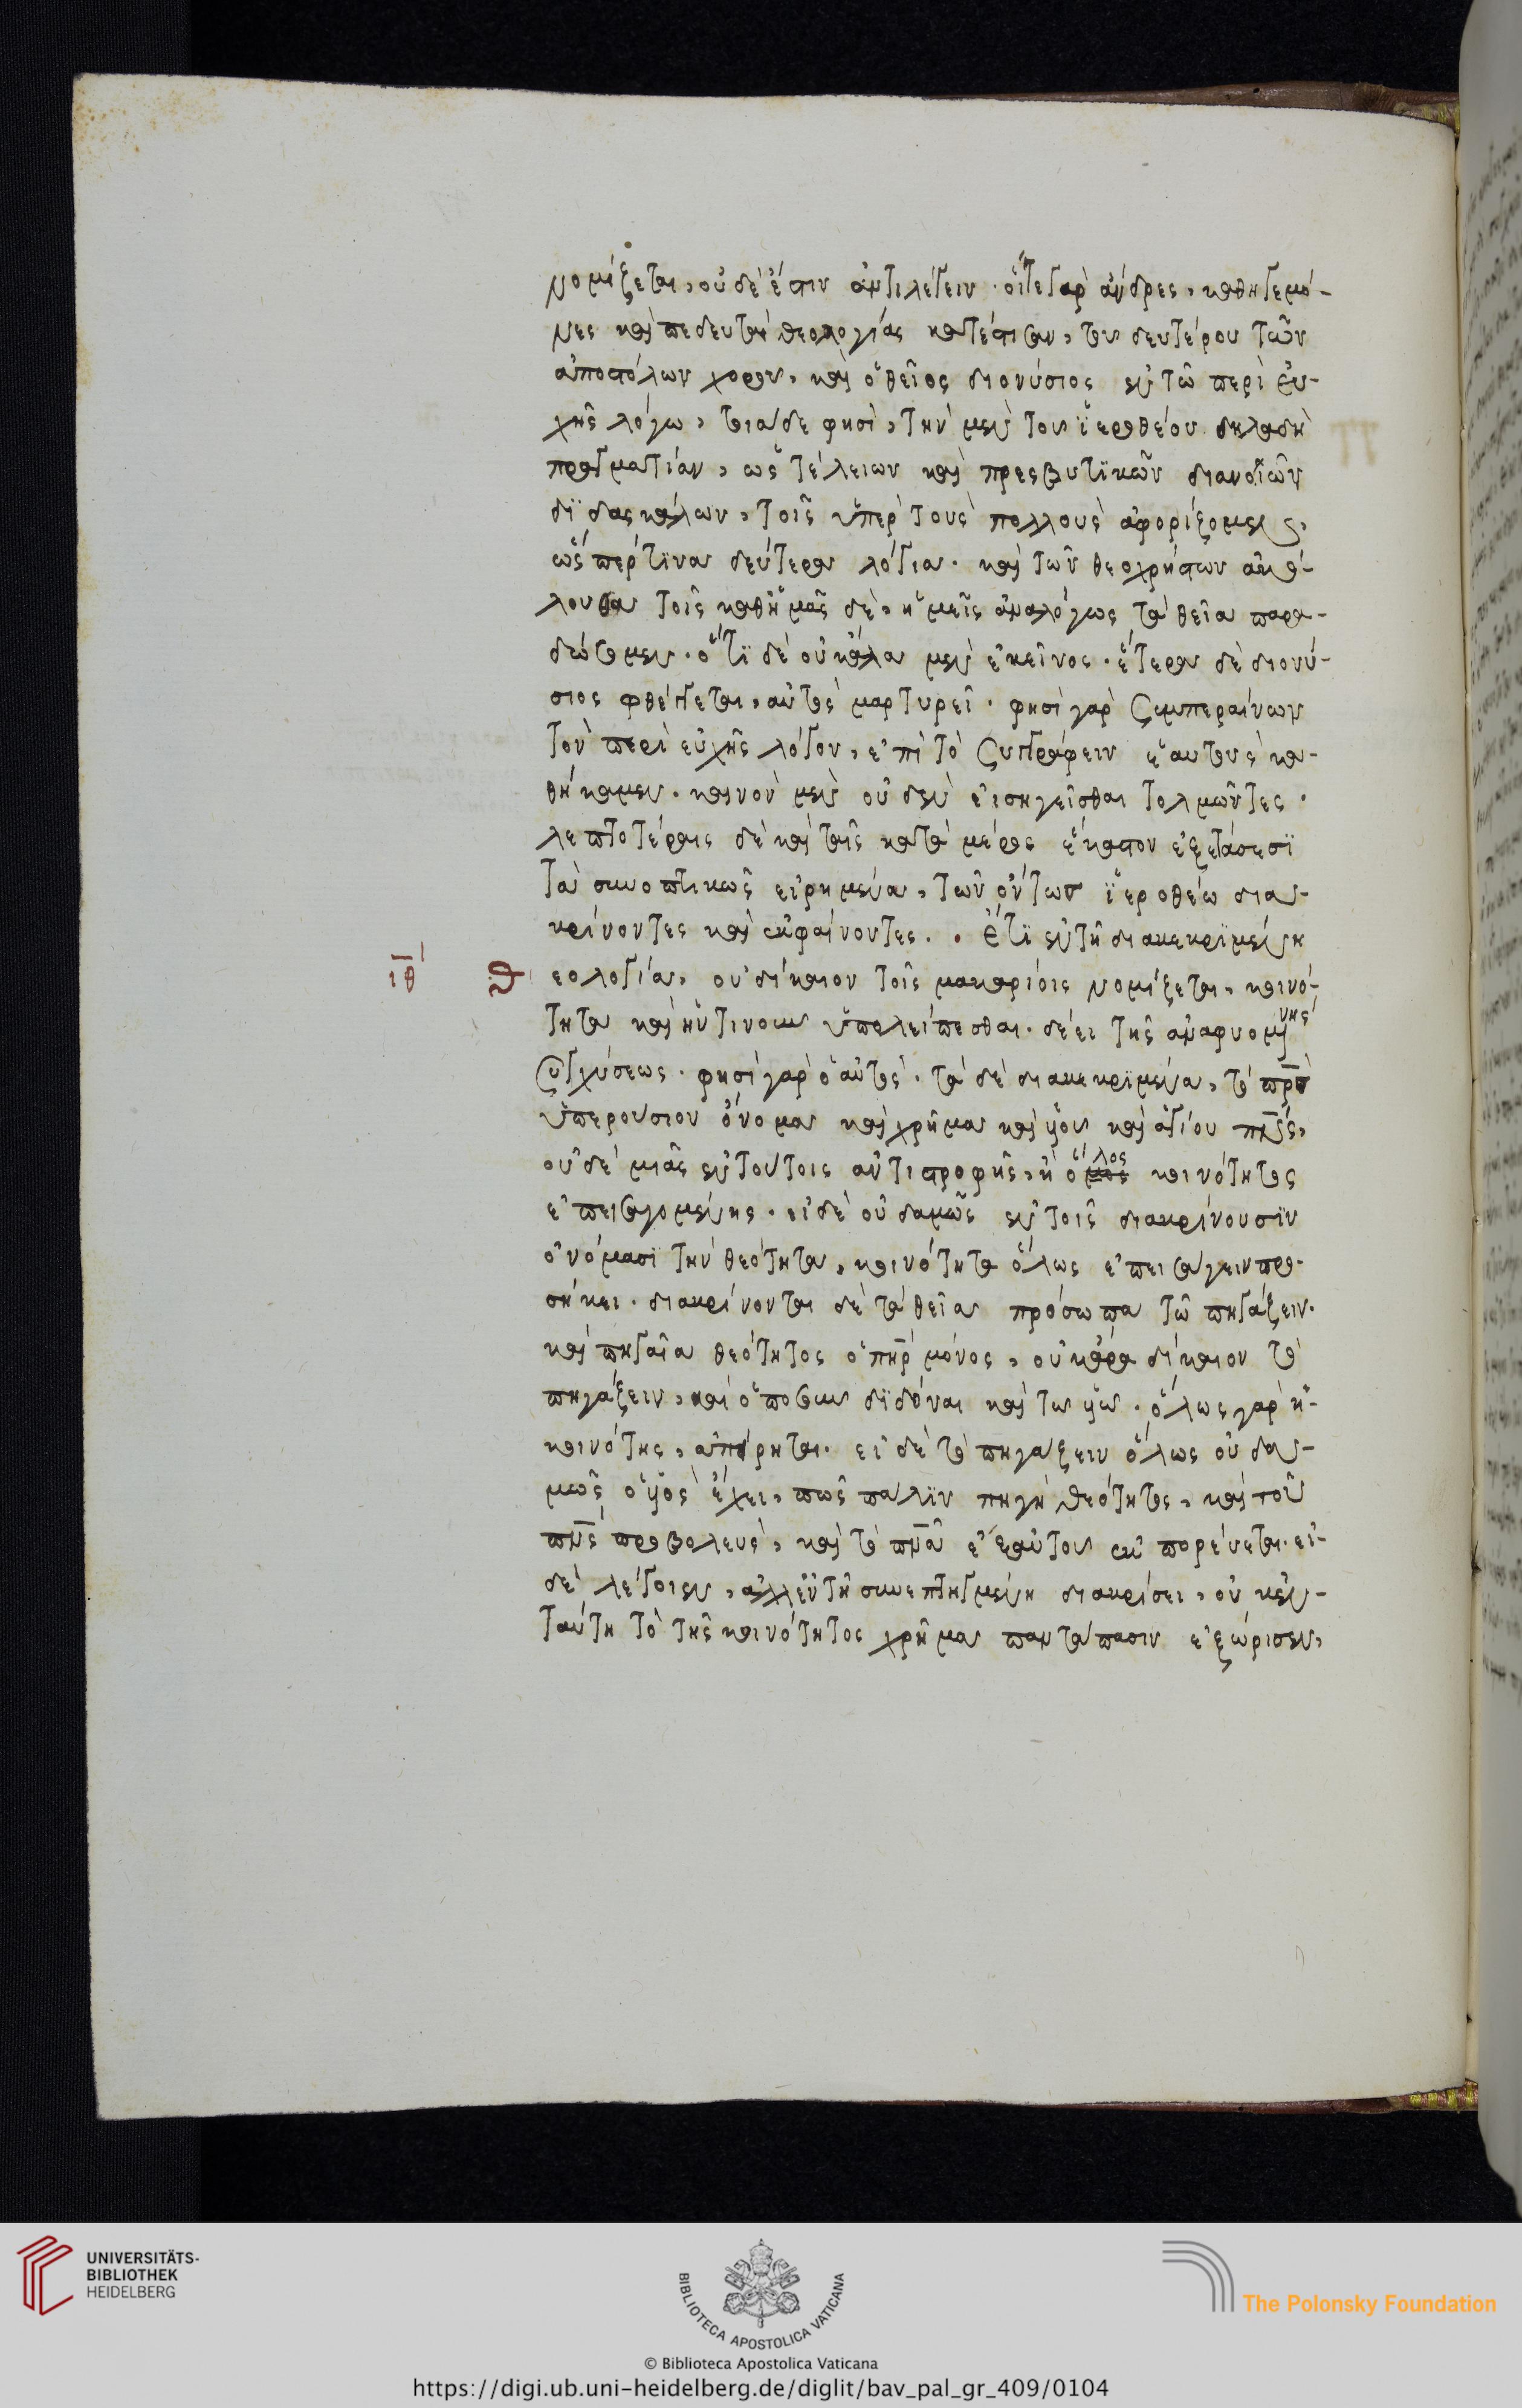 νομίζεται, οὐδὲ ἔστιν ἀντιλέγειν. οἵτε γὰρ ἄνδρες, καθηγεμό-
νες καὶ πεδευταὶ θεολογίας κατέστησαν, του δευτέρου τῶν
ἀποστόλων χοροῦ, καὶ ὁ θεῖος διονύσιος ἐν τῶ περὶ εὐ-
χῆς λόγω, τιάδε φησὶ, τὴν μὲν τοῦ ἱεροθέου δηλαδὴ
πραγματίαν, ὡς τέλειων καὶ πρεσβυτικῶν διανοιῶν
διδασκάλων, τοῖς ὑπὲρ τοὺς πολλοὺς ἀφορίζομεν,
ὥσπερ τινα δεύτερα λόγια. καὶ τῶν θεοχρήστων ἀκό-
λουθα τοῖς καθ' ἡμᾶς δὲ, ἡμεῖς ἀναλόγως τὰ θεῖα παρα-
δώσομεν. ὅτι δὲ οὐκ ἄλα μὲν ἐκεῖνος. ἕτερα δὲ διονύ-
σιος φθέγγεται, αὐτὸς μαρτυρεῖ. φησὶ γὰρ συμπεραίνων
τὸν περὶ εὐχῆς λόγον, ἐπὶ τὸ συγγράφειν ἑαυτοὺς κα-
θήκαμεν. καινὸν μὲν οὐδὲν εἰσηγεῖσθαι τολμῶντες.
λεπτοτέραις δὲ καὶ ταῖς κατὰ μέρος ἕκαστον ἐξετάσεσι
τὰ συνοπτικῶς εἰρημένα, τῶν ὄντως ἱεροθέω δια-
κρίνοντες καὶ ἐκφαίνοντες. . ἔτι ἐν τῆ διακεκριμένη
ιθ θεολογία, οὐ δίκαιον τοῖς μακαρίοις νομίζεται, κοινό-
τητα καὶ ἥντινουν ὑπολείπεσθαι. δέει τῆς ἀναφυομένης
συγχύσεως. φησὶ γὰρ ὁ αὐτὸς. τὰ δὲ διακεκριμένα, τὸ πρς
ὑπερούσιον ὄνομα καὶ χρῆμα καὶ υἱοῦ καὶ ἁγίου πνς,
οὐδὲ μιᾶς ἐν τούτοις ἀντιστροφῆς, ἢ ὅλος κοινότητος
ἐπεισαγομένης. εἰ δὲ οὐδαμῶς ἐν τοῖς διακρίνουσιν
ὀνόμασι τὴν θεότητα, κοινότητα ὅλως ἐπεισάγειν προ-
σήκει. διακρίνονται δὲ τὰ θεῖα πρόσωπα τῶ πηγάζειν.
καὶ πηγαῖα θεότητος ὁ πηρ μόνος, οὐκ ἄρα δίκαιον τὸ
πηγάζειν, καὶ ὁποσοῦν διδόναι καὶ τω υἱῶ. ὅλως γὰρ ἡ
κοινότης, ἀπήρηται. εἰ δὲ τὸ πηγάζειν ὅλως οὐδα-
μῶς ὁ υἱὸς ἔχει, πῶς πάλιν πηγὴ θεότητος, καὶ τοῦ
πνς προβολεὺς, καὶ τὸ πνα ἐξ αὐτοῦ ἐκπορεύεται. εἰ
δὲ λέγοιεν, ἀλλ' ἐν τῆ συνεπτηγμένη διακρίσει, οὐκ ἐν
ταύτη τὸ τῆς κοινότητος χρῆμα παντάπασιν ἐξώρισεν,
UNIVERSITÄTS-
BIBLIOTHEK
HEIDELBERG
BIBLIOTECA APOSTOLICA VATICANA
The Polonsky Foundation
© Biblioteca Apostolica Vaticana
https://digi.ub.uni-heidelberg.de/diglit/bav_pal_gr_409/0104